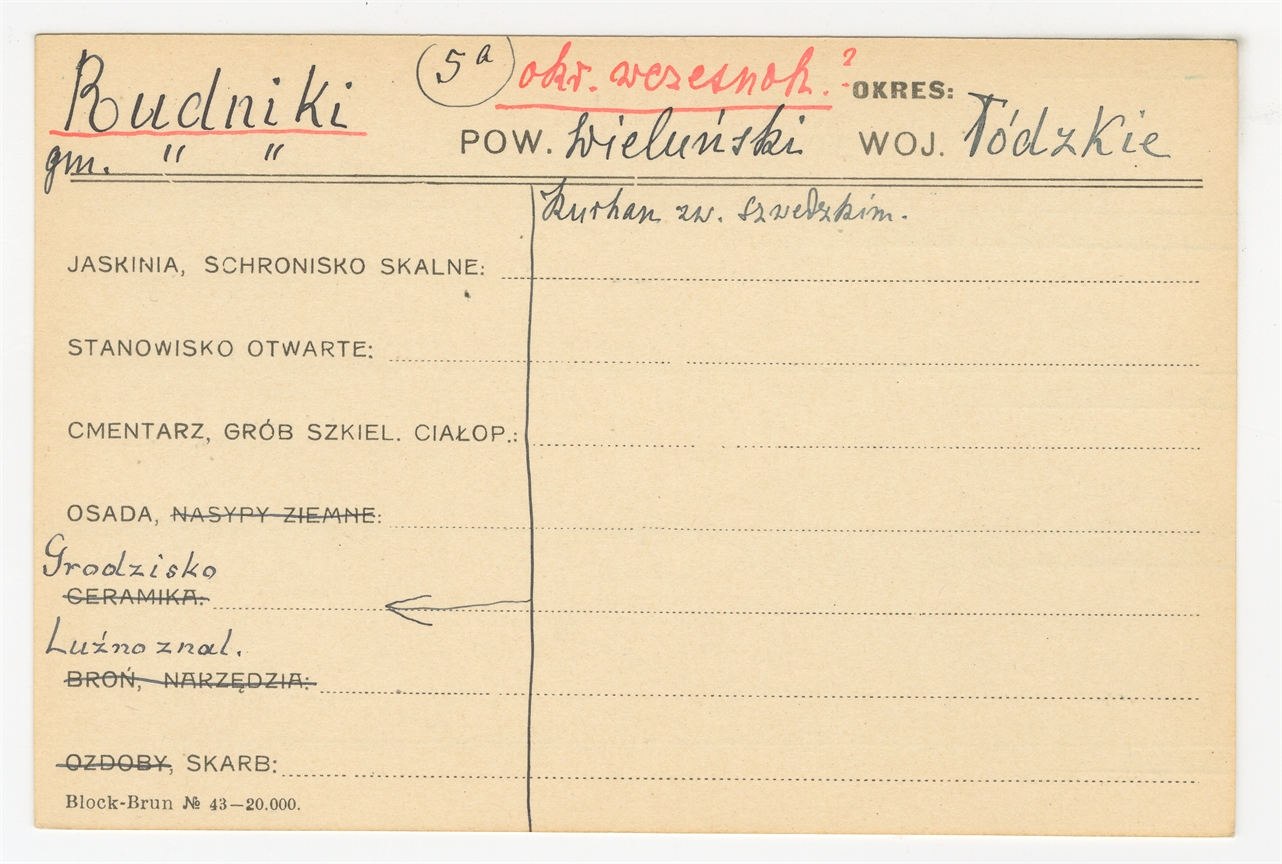 Rudniki (5a) okr. wczesnoh.? OKRES:
gm. " " POW. Wieluński WOJ. Łódzkie
Kurhan zw. szwedzkim.
JASKINIA, SCHRONISKO SKALNE:
STANOWISKO OTWARTE:
CMENTARZ, GRÓB SZKIEL. CIAŁOP.:
OSADA, NASYPY ZIEMNE:
Grodzisko
CERAMIKA:
Luźno znal.
BROŃ, NARZĘDZIA:
OZDOBY, SKARB:
Block-Brun № 43—20.000.